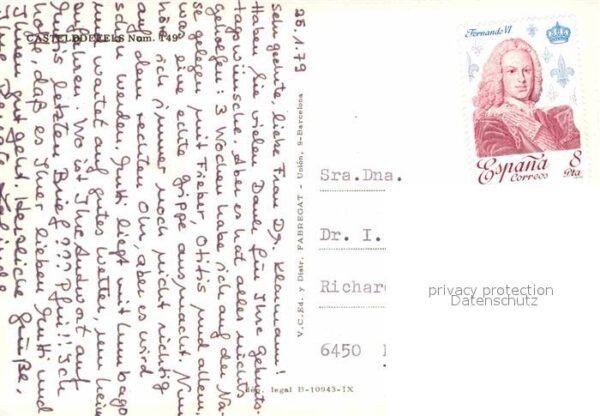 CASTELLDEFELS Núm. 149
25.1.79
Sehr geehrte, liebe Frau Dr. Klarmann!
Haben Sie vielen Dank für Ihre Geburts-
tagswünsche. Aber es hat alles nichts
geholfen: 3 Wochen habe ich auf der Na-
se gelegen mit Fieber, Otitis und allem,
was eine echte Grippe ausmacht. Nun
hör ich immer noch nicht richtig
auf dem rechten Ohr, aber es wird
schon werden. Mutti liegt mit Lumbago
und wartet auf gutes Wetter, um heim
zu fahren. Wo ist Ihre Antwort auf
Muttis letzten Brief??? Pfui!! Ich
hoffe, daß es Ihrer lieben Mutti und
Ihnen gut geht. Herzliche Grüße,
Ihre
V.C.Ed. y Distr. FABREGAT - Unión, 9-Barcelona
Dep. legal B-10943-IX
Fernando VI
España
Correos
8
Pta
Sra.Dna.
Dr. I.
Richar
6450
privacy protection
Datenschutz